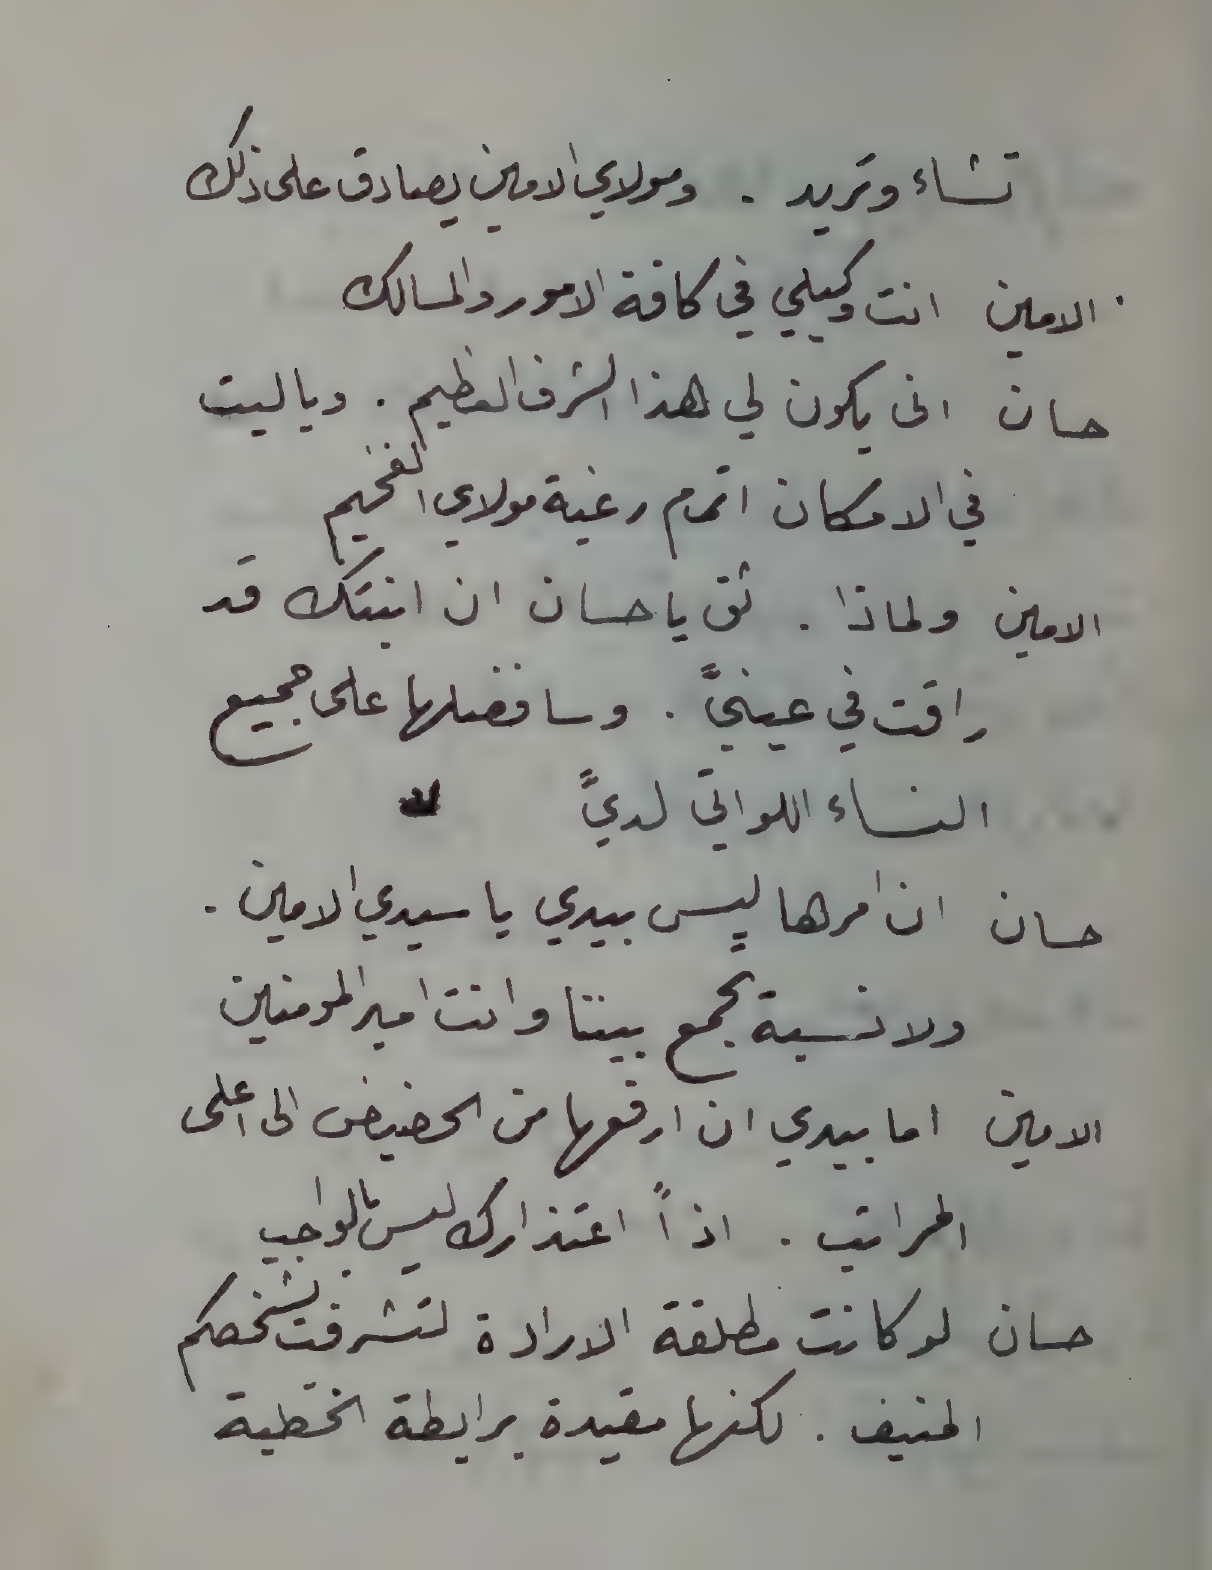 تشاء وتريد . ومولاي الامين يصادق على ذلك
الامين انت وكيلي في كافة الامور والمسالك
حسان انى يكون لي هذا الشرف العظيم . وياليت
في الامكان اتمم رغبة مولاي الفخيم
الامين ولماذا . ثق يا حسان ان ابنتك قد
راقت في عينيَّ . وسافضلها على جميع
النساء اللواتي لديَّ
حسان ان امرها ليس بيدي يا سيدي الامين .
ولا نسبة تجمع بيننا وانت امير المومنين
الامين اما بيدي ان ارفعها من الحضيض الى اعلى
المراتب . اذاً اعتذارك ليس بالواجب
حسان لو كانت مطلقة الارادة لتشرفت بشخصكم
المنيف . لكنها مقيدة برابطة الخطبة